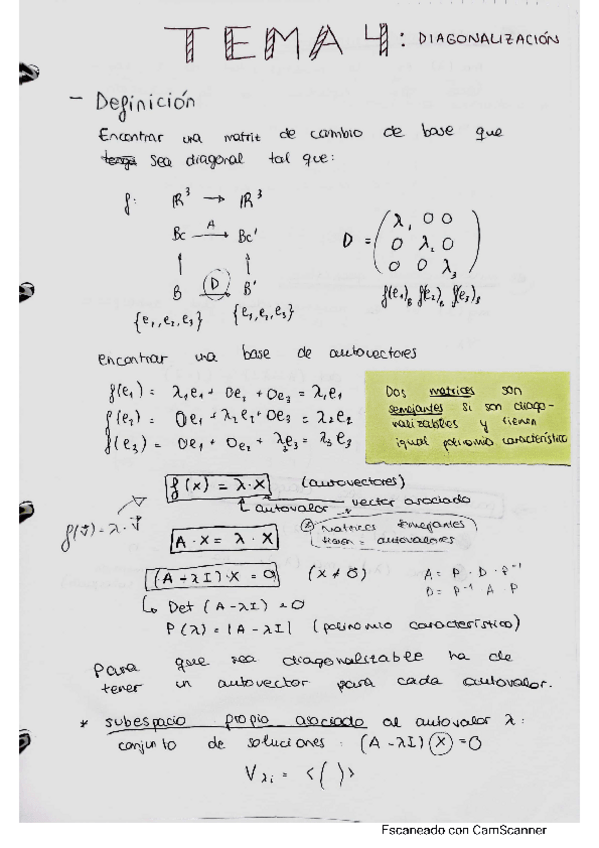 TEMA 4: DIAGONALIZACIÓN
- Definición
Encontrar una matriz de cambio de base que
tenga sea diagonal tal que:
f: ℝ³ → ℝ³
Bc —A→ Bc'
↑ ↑
B —D→ B'
{e₁,e₂,e₃} {e₁,e₂,e₃}
D = ( λ₁ 0 0
0 λ₂ 0
0 0 λ₃ )
f(e₁)_B f(e₂)_B f(e₃)_B
encontrar una base de autovectores
f(e₁) = λ₁e₁ + 0e₂ + 0e₃ = λ₁e₁
f(e₂) = 0e₁ + λ₂e₂ + 0e₃ = λ₂e₂
f(e₃) = 0e₁ + 0e₂ + λ₃e₃ = λ₃e₃
Dos matrices son
semejantes si son diago-
nalizables y tienen
igual polinomio característico
f(x) = λ·x (autovectores)
autovalor vector asociado
f(v) = λ·v
A·x = λ·x
matrices semejantes
tienen = autovalores
(A - λI)·x = 0 (x ≠ 0)
A = P · D · P⁻¹
D = P⁻¹ A P
↳ Det (A - λI) = 0
P(λ) = |A - λI| (polinomio característico)
Para que sea diagonalizable ha de
tener un autovector para cada autovalor.
* subespacio propio asociado al autovalor λ:
conjunto de soluciones: (A - λI)(x) = 0
Vλᵢ = <( )>
Escaneado con CamScanner